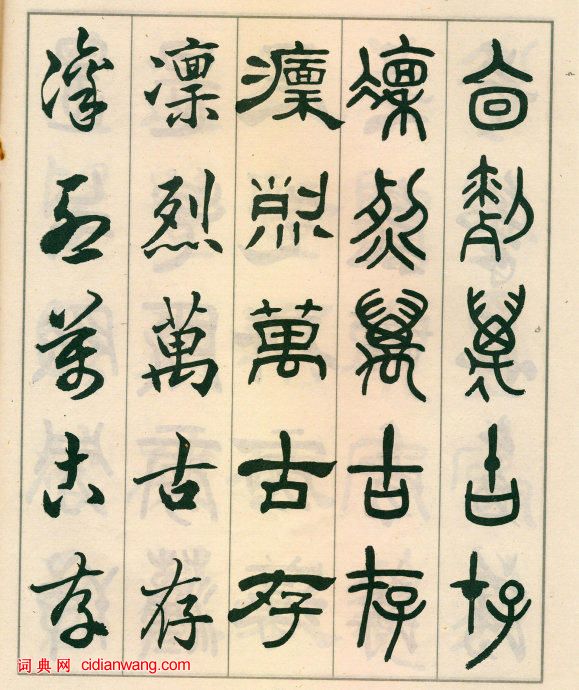 凛烈萬古存
凛烈萬古存
凛烈萬古存
凛烈萬古存
凛烈萬古存
词典网 cidianwang.com